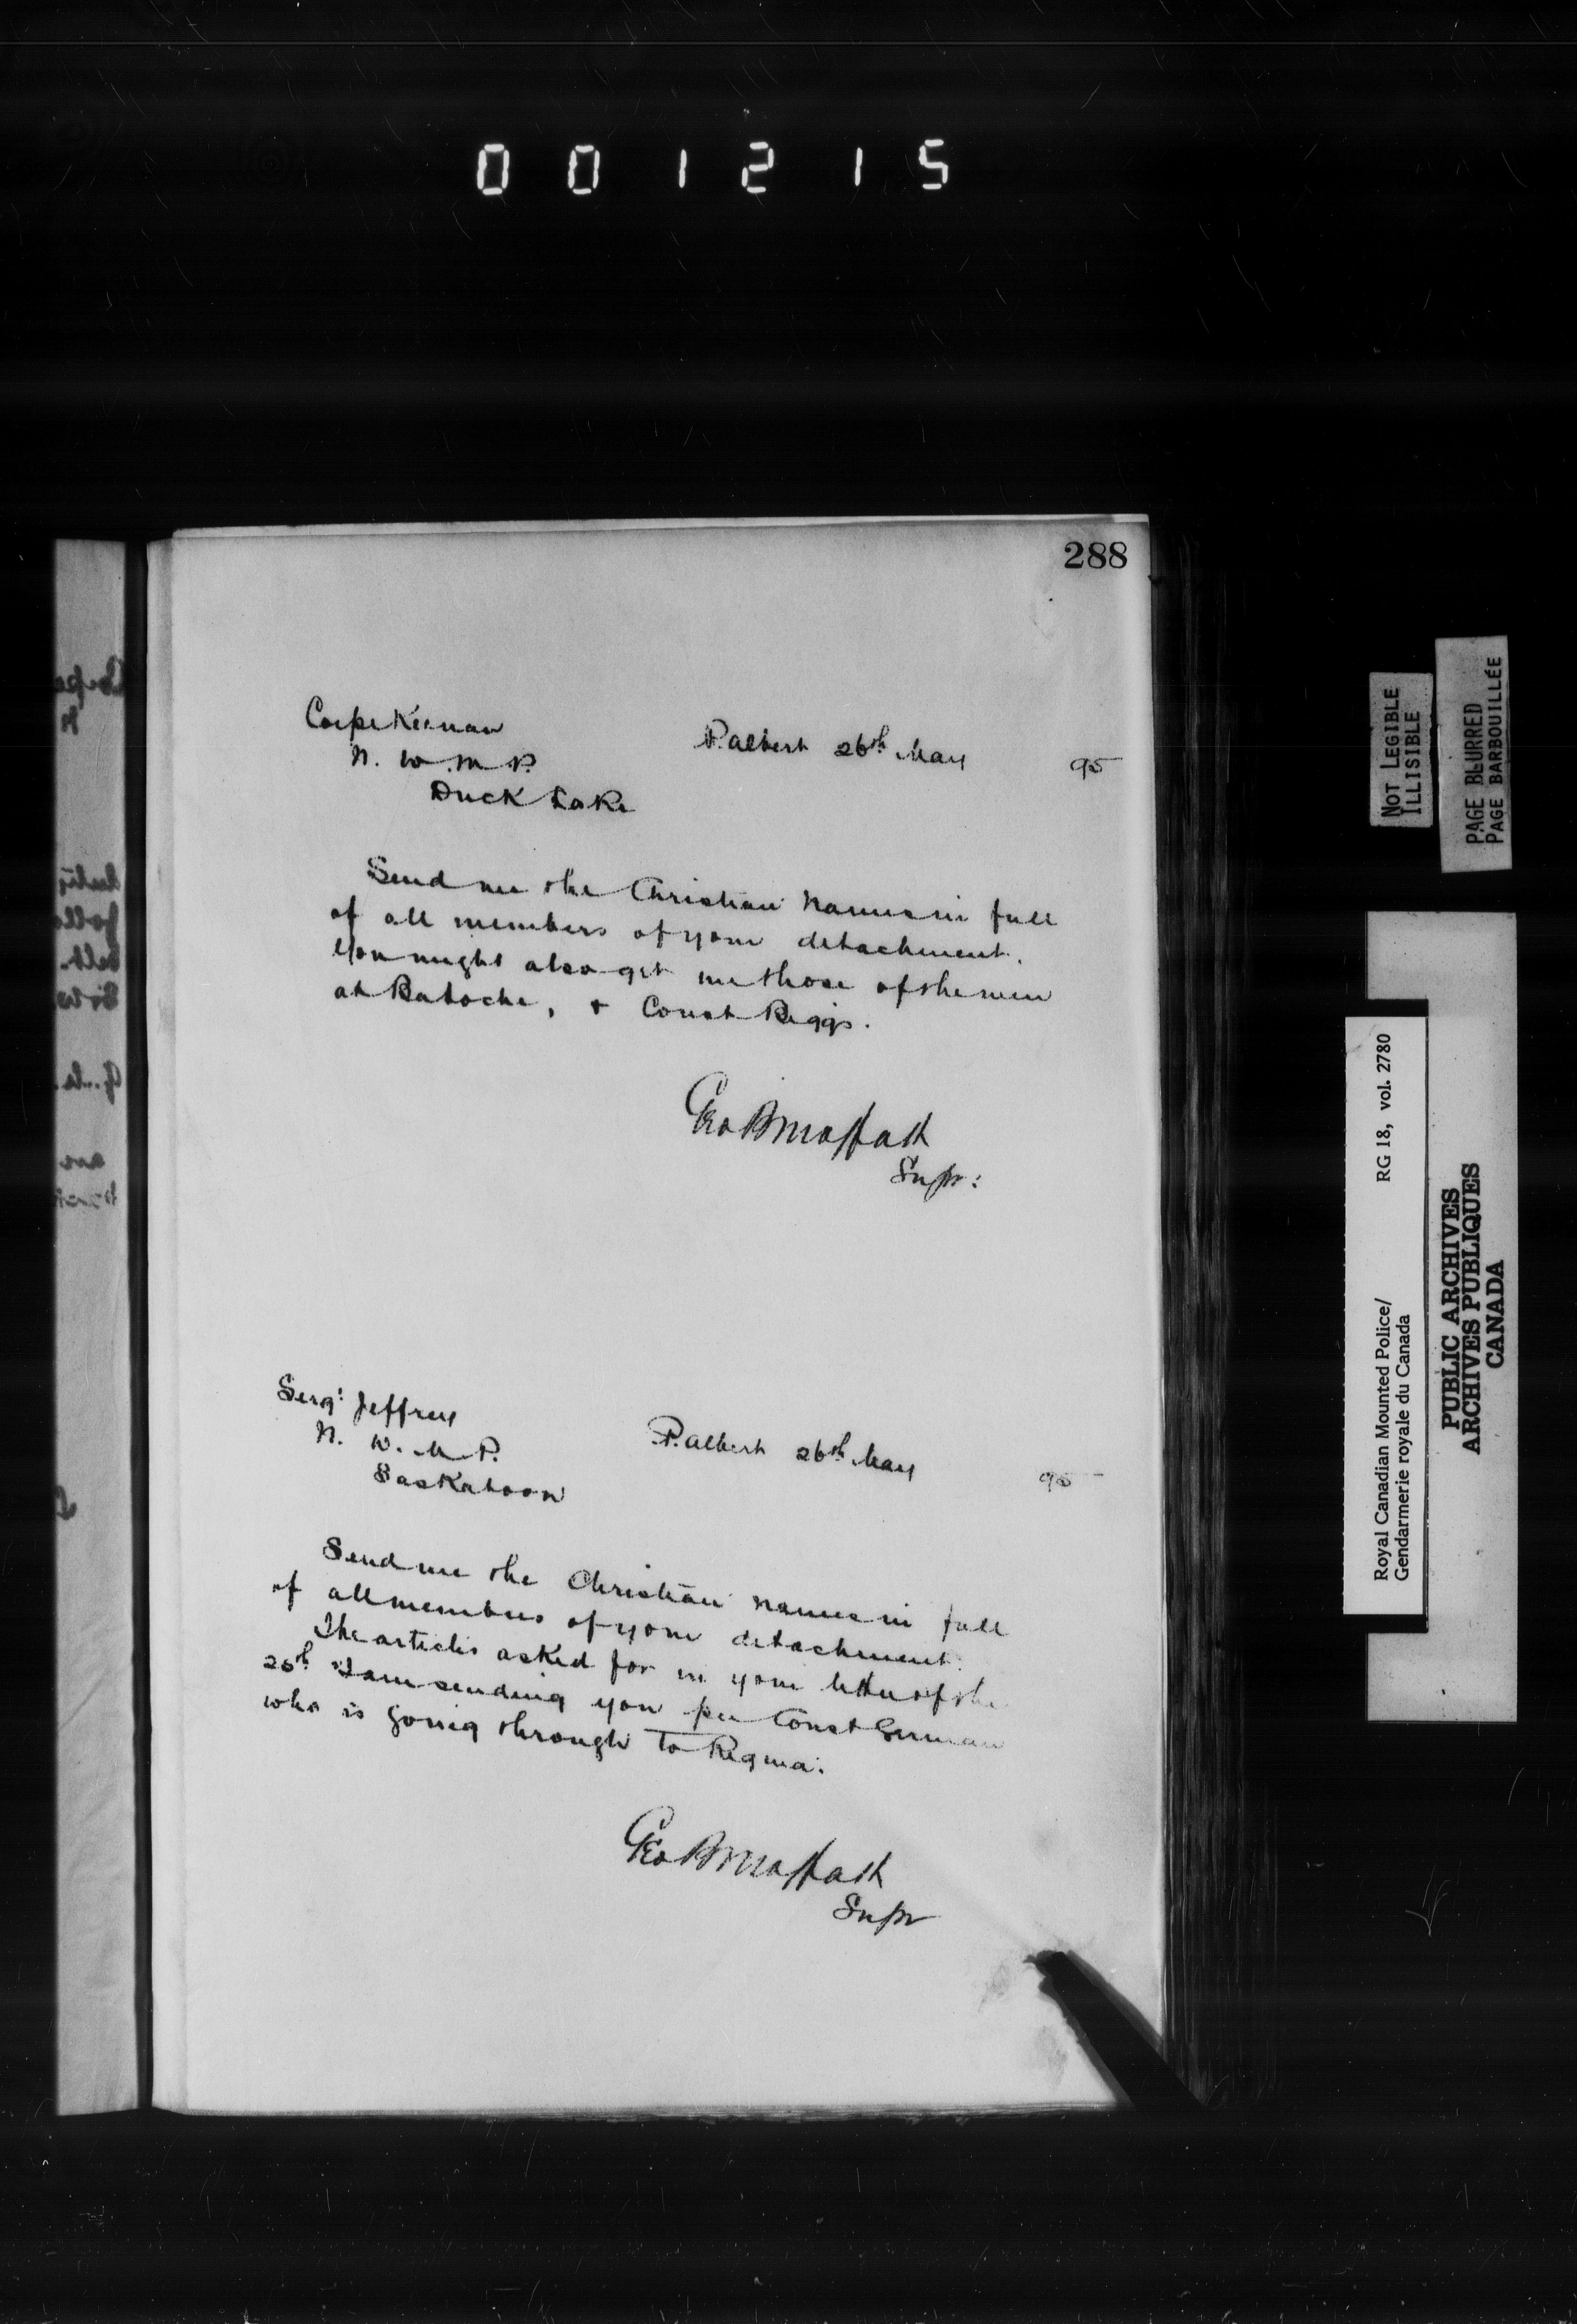 001215
288
Corpl Keenan
N. W. M. P.
Duck Lake
P. Albert 26th May 95
Send me the Christian names in full
of all members of your detachment.
You might also get me those of the men
at Batoche, + Const Riggs.
Geo B Moffatt
Supt:
Sergt Jeffrey
N. W. M. P.
Saskatoon
P. Albert 26th May 95
Send me the Christian names in full
of all members of your detachment.
The articles asked for in your letter of the
25th I am sending you per Const German
who is going through to Regina.
Geo B Moffatt
Supt
NOT LEGIBLE
ILLISIBLE
PAGE BLURRED
PAGE BARBOUILLÉE
Royal Canadian Mounted Police/ RG 18, vol. 2780
Gendarmerie royale du Canada
PUBLIC ARCHIVES
ARCHIVES PUBLIQUES
CANADA